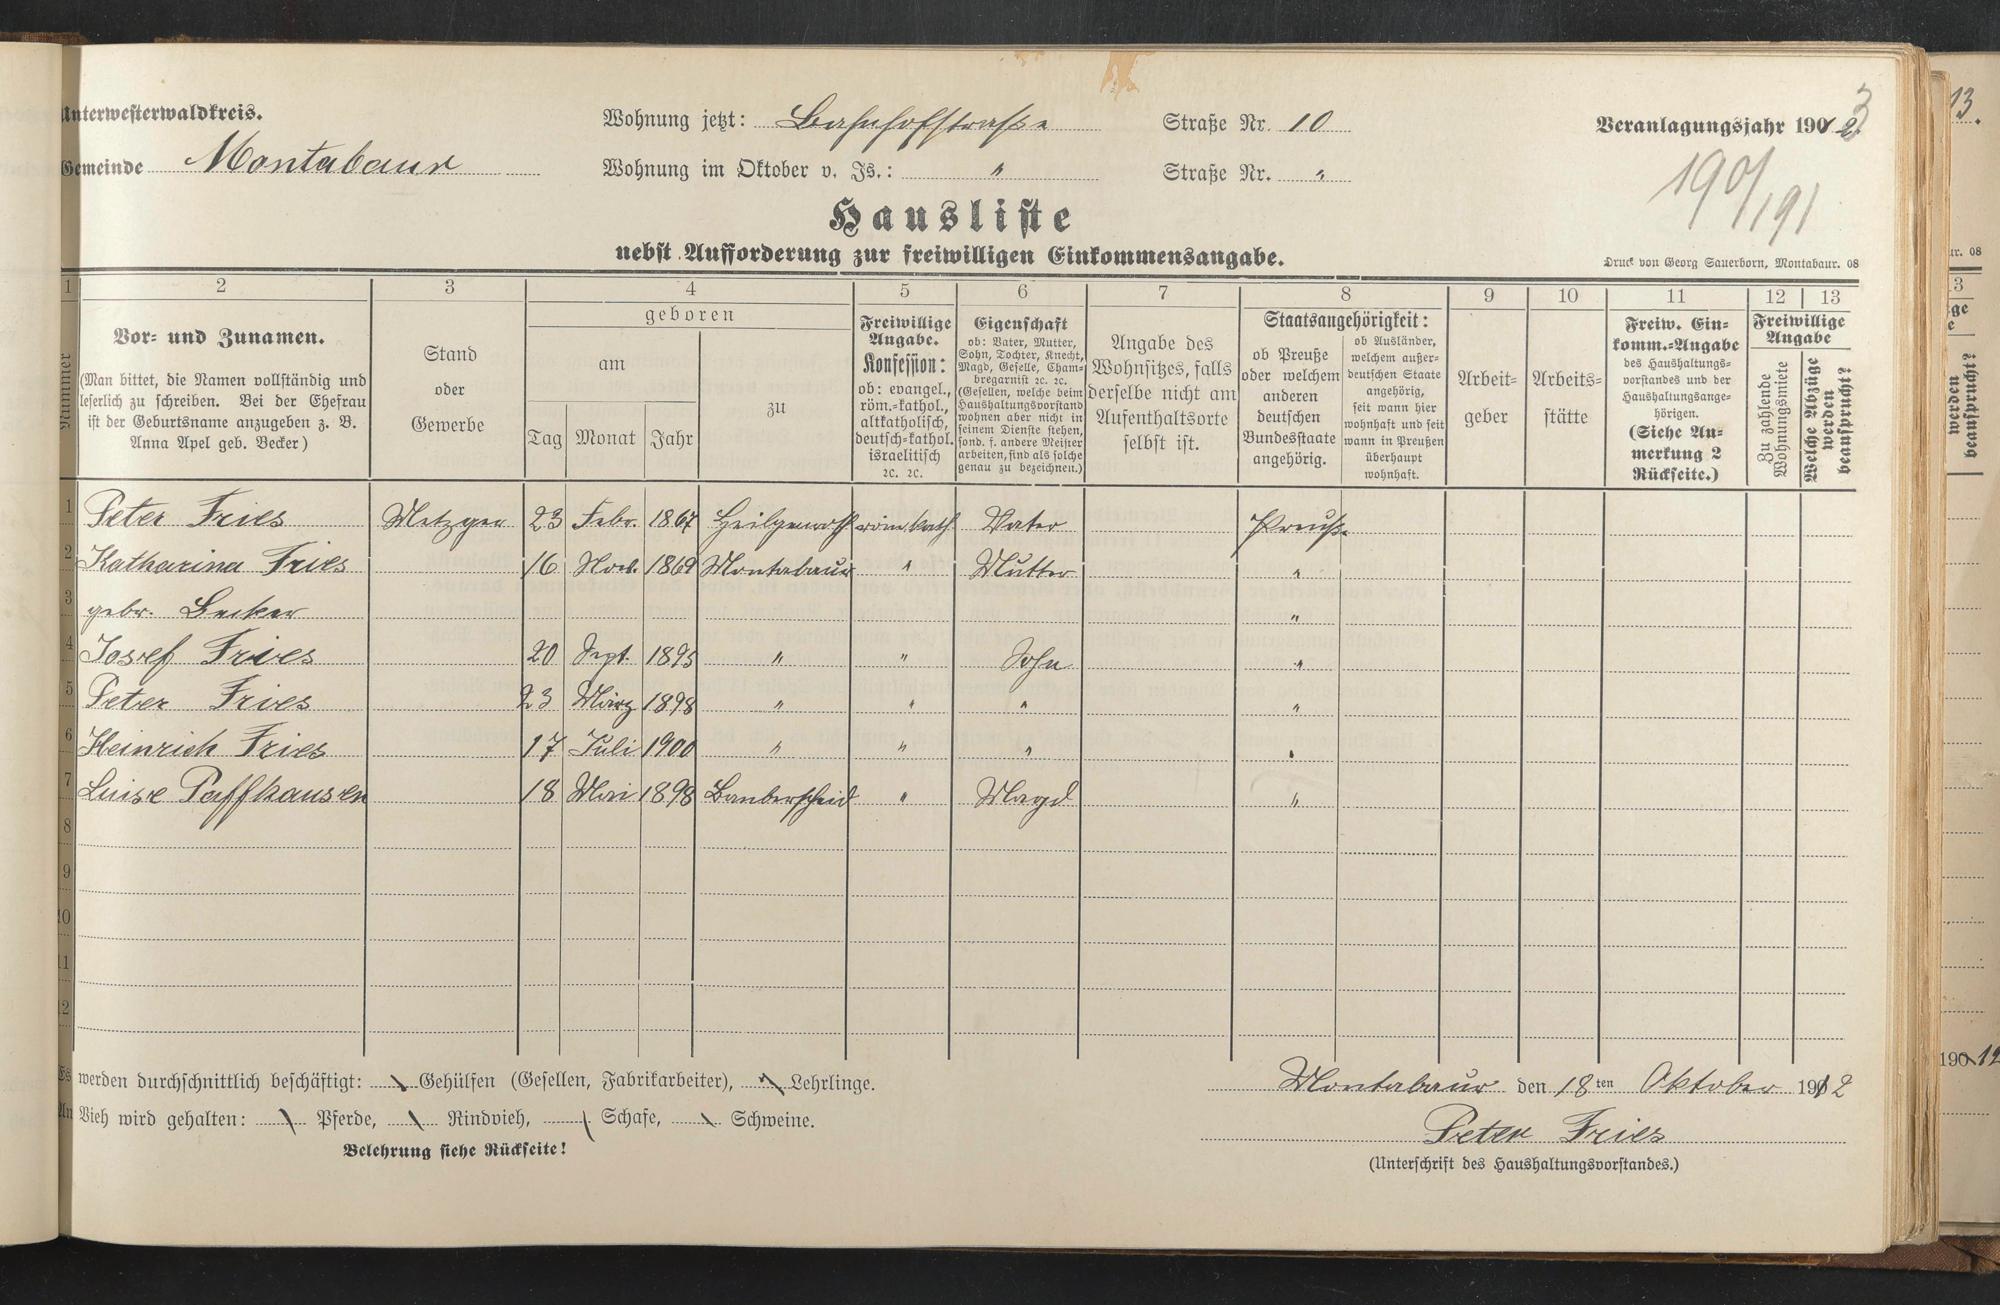 Unterwesterwaldkreis.
Gemeinde Montabaur
Wohnung jetzt: Bahnhofstraße Straße Nr. 10
Wohnung im Oktober v. Js.: " Straße Nr. "
Veranlagungsjahr 190
190/191
Hausliste
nebst Aufforderung zur freiwilligen Einkommensangabe.
Druck von Georg Sauerborn, Montabaur. 08
1 2 3 4 5 6 7 8 9 10 11 12 13
Nummer
Vor- und Zunamen.
(Man bittet, die Namen vollständig und
leserlich zu schreiben. Bei der Ehefrau
ist der Geburtsname anzugeben z. B.
Anna Apel geb. Becker)
Stand
oder
Gewerbe
geboren
am
Tag Monat Jahr
zu
Freiwillige
Angabe.
Konfession:
ob: evangel.,
röm.-kathol.,
altkatholisch,
deutsch-kathol.
israelitisch
ꝛc. ꝛc.
Eigenschaft
ob: Vater, Mutter,
Sohn, Tochter, Knecht,
Magd, Geselle, Cham-
bregarnist ꝛc. ꝛc.
(Gesellen, welche beim
Haushaltungsvorstand
wohnen aber nicht in
seinem Dienste stehen,
sond. f. andere Meister
arbeiten, sind als solche
genau zu bezeichnen.)
Angabe des
Wohnsitzes, falls
derselbe nicht am
Aufenthaltsorte
selbst ist.
Staatsangehörigkeit:
ob Preuße
oder welchem
anderen
deutschen
Bundesstaate
angehörig.
ob Ausländer,
welchem außer-
deutschen Staate
angehörig,
seit wann hier
wohnhaft und seit
wann in Preußen
überhaupt
wohnhaft.
Arbeit-
geber
Arbeits-
stätte
Freiw. Ein-
komm.-Angabe
des Haushaltungs-
vorstandes und der
Haushaltungsange-
hörigen.
(Siehe An-
merkung 2
Rückseite.)
Freiwillige
Angabe
Zu zahlende
Wohnungsmiete
Welche Abzüge
werden
beansprucht?
1 Peter Fries Metzger 23 Febr. 1867 Heilgenroth röm. kath. Vater Preuße
2 Katharina Fries 16 Nov. 1869 Montabaur " Mutter "
3 gebr. Becker "
4 Josef Fries 20 Sept. 1895 " " Sohn "
5 Peter Fries 23 März 1898 " " " "
6 Heinrich Fries 17 Juli 1900 " " " "
7 Luise Paffhausen 18 Mai 1898 Bamberscheid " Magd "
8
9
10
11
12
Es werden durchschnittlich beschäftigt: Gehülfen (Gesellen, Fabrikarbeiter), Lehrlinge.
An Vieh wird gehalten: Pferde, Rindvieh, Schafe, Schweine.
Belehrung siehe Rückseite!
Montabaur den 18ten Oktober 1912
Peter Fries
(Unterschrift des Haushaltungsvorstandes.)
13.
ur. 08
3
ge
e
werden
beansprucht?
190 12